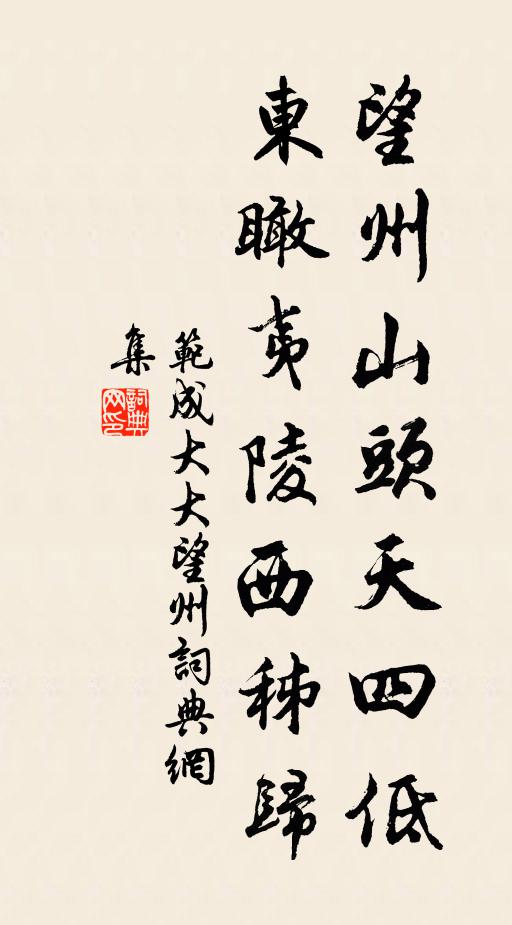 望州山頭天四低
東瞰夷陵西秭歸
範成大大望州詞典網
集
詞典
网印